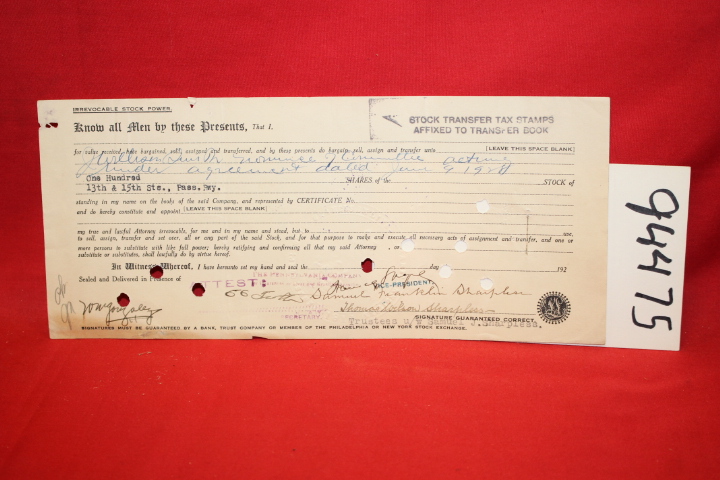 IRREVOCABLE STOCK POWER.
Know all Men by these Presents, That I.
STOCK TRANSFER TAX STAMPS
AFFIXED TO TRANSFER BOOK
for value received, have bargained, sold, assigned and transferred, and by these presents do bargain, sell, assign and transfer unto [LEAVE THIS SPACE BLANK]
J. William Smith nominee of Committee acting
under agreement dated June 9 1928
One Hundred SHARES of the STOCK of
13th & 15th Sts., Pass. Rwy.
standing in my name on the books of the said Company, and represented by CERTIFICATE No.
and do hereby constitute and appoint [LEAVE THIS SPACE BLANK]
my true and lawful Attorney irrevocable, for me and in my name and stead, but to use,
to sell, assign, transfer and set over, all or any part of the said Stock, and for that purpose to make and execute all necessary acts of assignment and transfer, and one or
more persons to substitute with like full power; hereby ratifying and confirming all that my said Attorney, or
substitute or substitutes, shall lawfully do by virtue hereof.
In Witness Whereof, I have hereunto set my hand and seal the day of 192
Sealed and Delivered in Presence of
ATTEST:
VICE-PRESIDENT
Samuel Franklin Sharpless
SECRETARY
Thomas Watson Sharpless
SIGNATURE GUARANTEED CORRECT.
Trustees u/w Samuel J. Sharpless.
SIGNATURES MUST BE GUARANTEED BY A BANK, TRUST COMPANY OR MEMBER OF THE PHILADELPHIA OR NEW YORK STOCK EXCHANGE.
94475